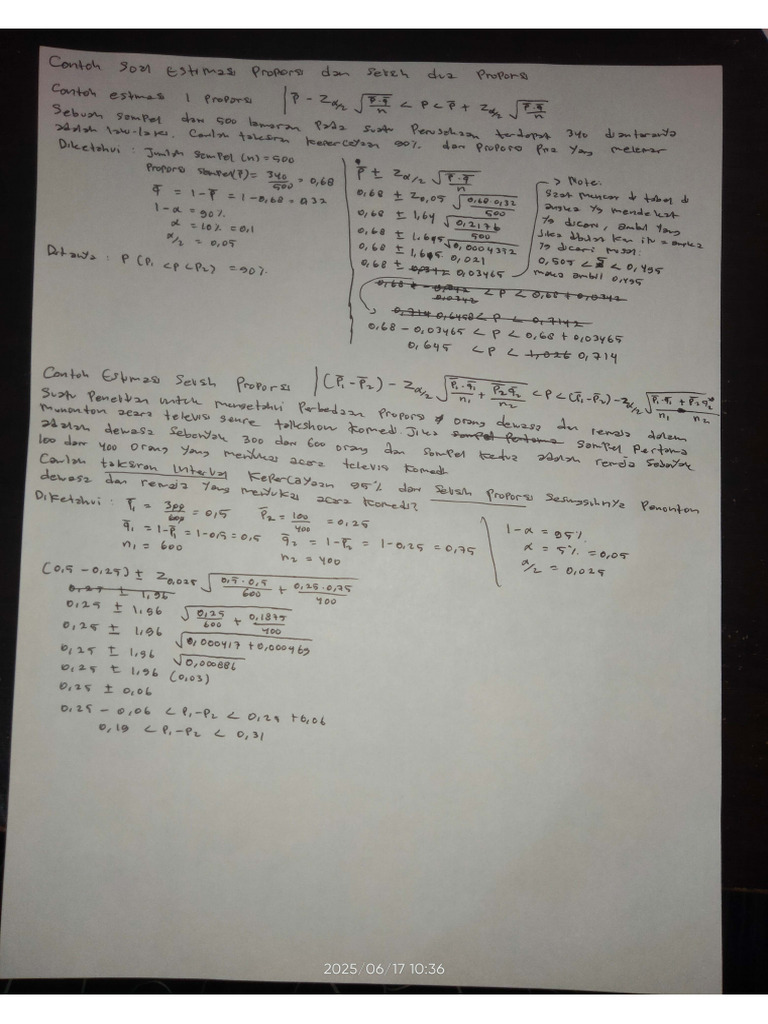 Contoh soal Estimasi Proporsi dan Selisih dua Proporsi
Contoh estimasi 1 Proporsi | p̅ - Zα/2 √(p̅·q̅/n) < P < p̅ + Zα/2 √(p̅·q̅/n)
Sebuah sampel dari 500 lamaran pada suatu Perusahaan terdapat 340 diantaranya
adalah laki-laki. Carilah taksiran kepercayaan 90% dari proporsi pria yang melamar
Diketahui : Jumlah Sampel (n) = 500
Proporsi Sampel(p̅) = 340/500 = 0,68
q̅ = 1 - p̅ = 1 - 0,68 = 0,32
1 - α = 90%
α = 10% = 0,1
α/2 = 0,05
Ditanya : P (P1 < P < P2) = 90%
p̅ ± Zα/2 √(p̅·q̅/n)
0,68 ± Z0,05 √(0,68·0,32/500)
0,68 ± 1,64 √(0,2176/500)
0,68 ± 1,645 √0,0004372
0,68 ± 1,645 0,021
0,68 ± 0,0342 0,03465
0,68 - 0,0342 < P < 0,68 + 0,0342
0,0342
0,7142 0,6458 < P < 0,7142
0,68 - 0,03465 < P < 0,68 + 0,03465
0,645 < P < 1,026 0,714
→ Note:
Saat mencari di tabel &
angka yg mendekati
yg dicari, ambil yang
ya dicari misal:
0,505 < < 0,495
maka ambil 0,495
Contoh Estimasi Selisih Proporsi | (p̅1 - p̅2) - Zα/2 √(p̅1·q̅1/n1 + p̅2·q̅2/n2) < P < (p̅1 - p̅2) - Zα/2 √(p̅1·q̅1/n1 + p̅2 q̅2/n2)
Suatu Penelitian untuk mengetahui Perbedaan Proporsi orang dewasa dan remaja dalam
menonton acara televisi genre talkshow komedi. Jika sampel Pertama sampel pertama
adalah dewasa sebanyak 300 dari 600 orang dan sampel kedua adalah remaja sebanyak
100 dari 400 orang yang menyukai acara televisi komedi
Carilah taksiran Interval Kepercayaan 95% dari selisih proporsi sesungguhnya Penonton
dewasa dan remaja yang menyukai acara komedi?
Diketahui : p̅1 = 300/600 = 0,5 p̅2 = 100/400 = 0,25
q̅1 = 1 - p̅1 = 1 - 0,5 = 0,5 q̅2 = 1 - p̅2 = 1 - 0,25 = 0,75
n1 = 600 n2 = 400
1 - α = 95%
α = 5% = 0,05
α/2 = 0,025
(0,5 - 0,25) ± Z0,025 √(0,5·0,5/600 + 0,25·0,75/400)
0,25 ± 1,96
0,25 ± 1,96 √(0,25/600 + 0,1875/400)
0,25 ± 1,96 √(0,000417 + 0,000469)
0,25 ± 1,96 √0,000886
0,25 ± 1,96 (0,03)
0,25 ± 0,06
0,25 - 0,06 < P1-P2 < 0,25 + 0,06
0,19 < P1-P2 < 0,31
2025/06/17 10:36